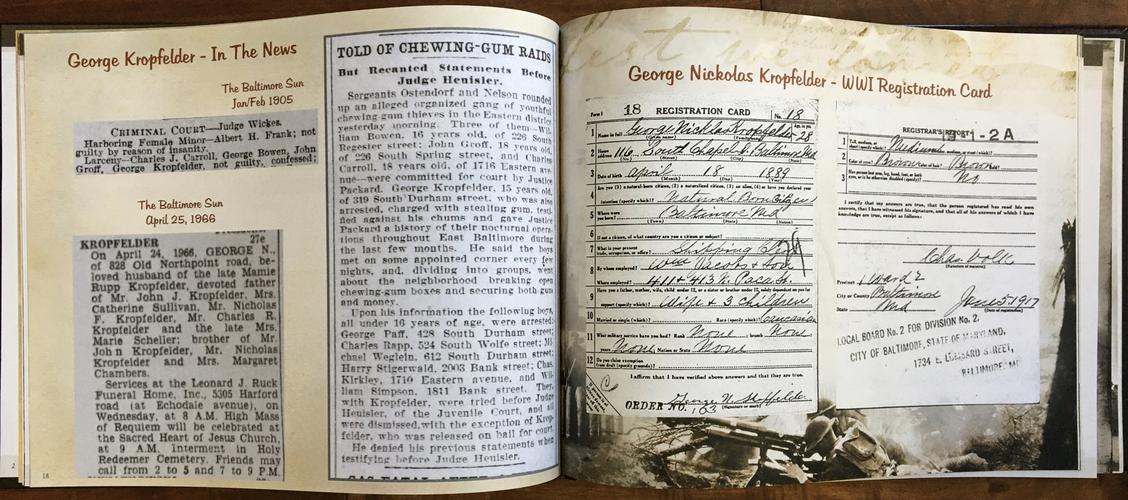 George Kropfelder - In The News
The Baltimore Sun
Jan/Feb 1905
CRIMINAL COURT—Judge Wickes.
Harboring Female Minor—Albert H. Frank; not
guilty by reason of insanity.
Larceny—Charles J. Carroll, George Bowen, John
Groff, George Kropfelder, not guilty, confessed;
The Baltimore Sun
April 25, 1966
KROPFELDER
27e
On April 24, 1966, GEORGE N.,
of 828 Old Northpoint road, be-
loved husband of the late Mamie
Rupp Kropfelder, devoted father
of Mr. John J. Kropfelder, Mrs.
Catherine Sullivan, Mr. Nicholas
F. Kropfelder, Mr. Charles R.
Kropfelder and the late Mrs.
Marie Scheller; brother of Mr.
John Kropfelder, Mr. Nicholas
Kropfelder and Mrs. Margaret
Chambers.
Services at the Leonard J. Ruck
Funeral Home, Inc., 5305 Harford
road (at Echodale avenue), on
Wednesday, at 8 A.M. High Mass
of Requiem will be celebrated at
the Sacred Heart of Jesus Church,
at 9 A.M. Interment in Holy
Redeemer Cemetery. Friends may
call from 2 to 5 and 7 to 9 P.M.
18
TOLD OF CHEWING-GUM RAIDS
But Recanted Statements Before
Judge Heuisler.
Sergeants Ostendorf and Nelson rounded
up an alleged organized gang of youthful
chewing-gum thieves in the Eastern district
yesterday morning. Three of them—Wil-
liam Bowen, 16 years old, of 226 South
Regester street; John Groff, 18 years old,
of 226 South Spring street, and Charles
Carroll, 18 years old, of 1716 Eastern ave-
nue—were committed for court by Justice
Packard. George Kropfelder, 15 years old,
of 319 South Durham street, who was also
arrested, charged with stealing gum, testi-
fied against his chums and gave Justice
Packard a history of their nocturnal opera-
tions throughout East Baltimore during
the last few months. He said the boys
met on some appointed corner every few
nights, and, dividing into groups, went
about the neighborhood breaking open
chewing-gum boxes and securing both gum
and money.
Upon his information the following boys,
all under 16 years of age, were arrested:
George Paff, 428 South Durham street;
Charles Rapp, 524 South Wolfe street; Mi-
chael Weglein, 612 South Durham street;
Harry Stigerwald, 2003 Bank street; Chas.
Kirkley, 1710 Eastern avenue, and Wil-
liam Simpson, 1811 Bank street. They,
with Kropfelder, were tried before Judge
Heuisler, of the Juvenile Court, and all
were dismissed, with the exception of Krop-
felder, who was released on bail for court.
He denied his previous statements when
testifying before Judge Heuisler.
George Nickolas Kropfelder - WWI Registration Card
Form 1 18 REGISTRATION CARD No. 18
1 Name in full George Nicklas Kropfelder 28
2 Home address 116 South Chapel St Baltimore Md
3 Date of birth April 18 1889
(Month) (Day) (Year)
4 Are you (1) a natural-born citizen, (2) a naturalized citizen, (3) an alien, (4) or have you declared your
intention (specify which)? Natural Born Citizen
5 Where were you born? Baltimore Md
(Town) (State) (Nation)
6 If not a citizen, of what country are you a citizen or subject?
7 What is your present trade, occupation, or office? Shipping
8 By whom employed?
Where employed? 411 & 413 N. Paca St.
9 Have you a father, mother, wife, child under 12, or a sister or brother under 12, solely dependent on you for
support (specify which)? Wife & 3 Children
10 Married or single (which)? Race (specify which)? Caucasian
11 What military service have you had? Rank None
years None Nation or State None
12 Do you claim exemption from draft (specify grounds)?
I affirm that I have verified above answers and that they are true.
ORDER NO. 163
(Signature or mark)
REGISTRAR'S REPORT 1-2A
1 Medium
2 Brown Brown
3 No
I certify that my answers are true, that the person registered has read his own
answers, that I have witnessed his signature, and that all of his answers of which I have
knowledge are true, except as follows:
(Signature of registrar)
Precinct 1 Ward 2
City or County Baltimore
State Md June 5 1917
(Date of registration)
LOCAL BOARD No. 2 FOR DIVISION No. 2.
CITY OF BALTIMORE, STATE OF MARYLAND.
1734 E. LOMBARD STREET,
BALTIMORE, MD.